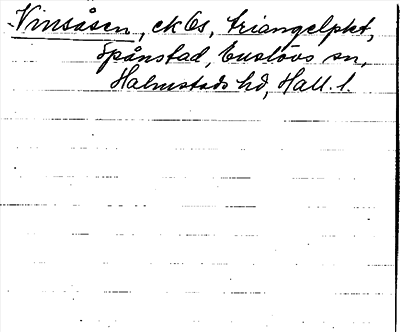 Vinsåsen, ek 6s, triangelpkt,
Spånstad, Enslövs sn,
Halmstads hd, Hall. l.